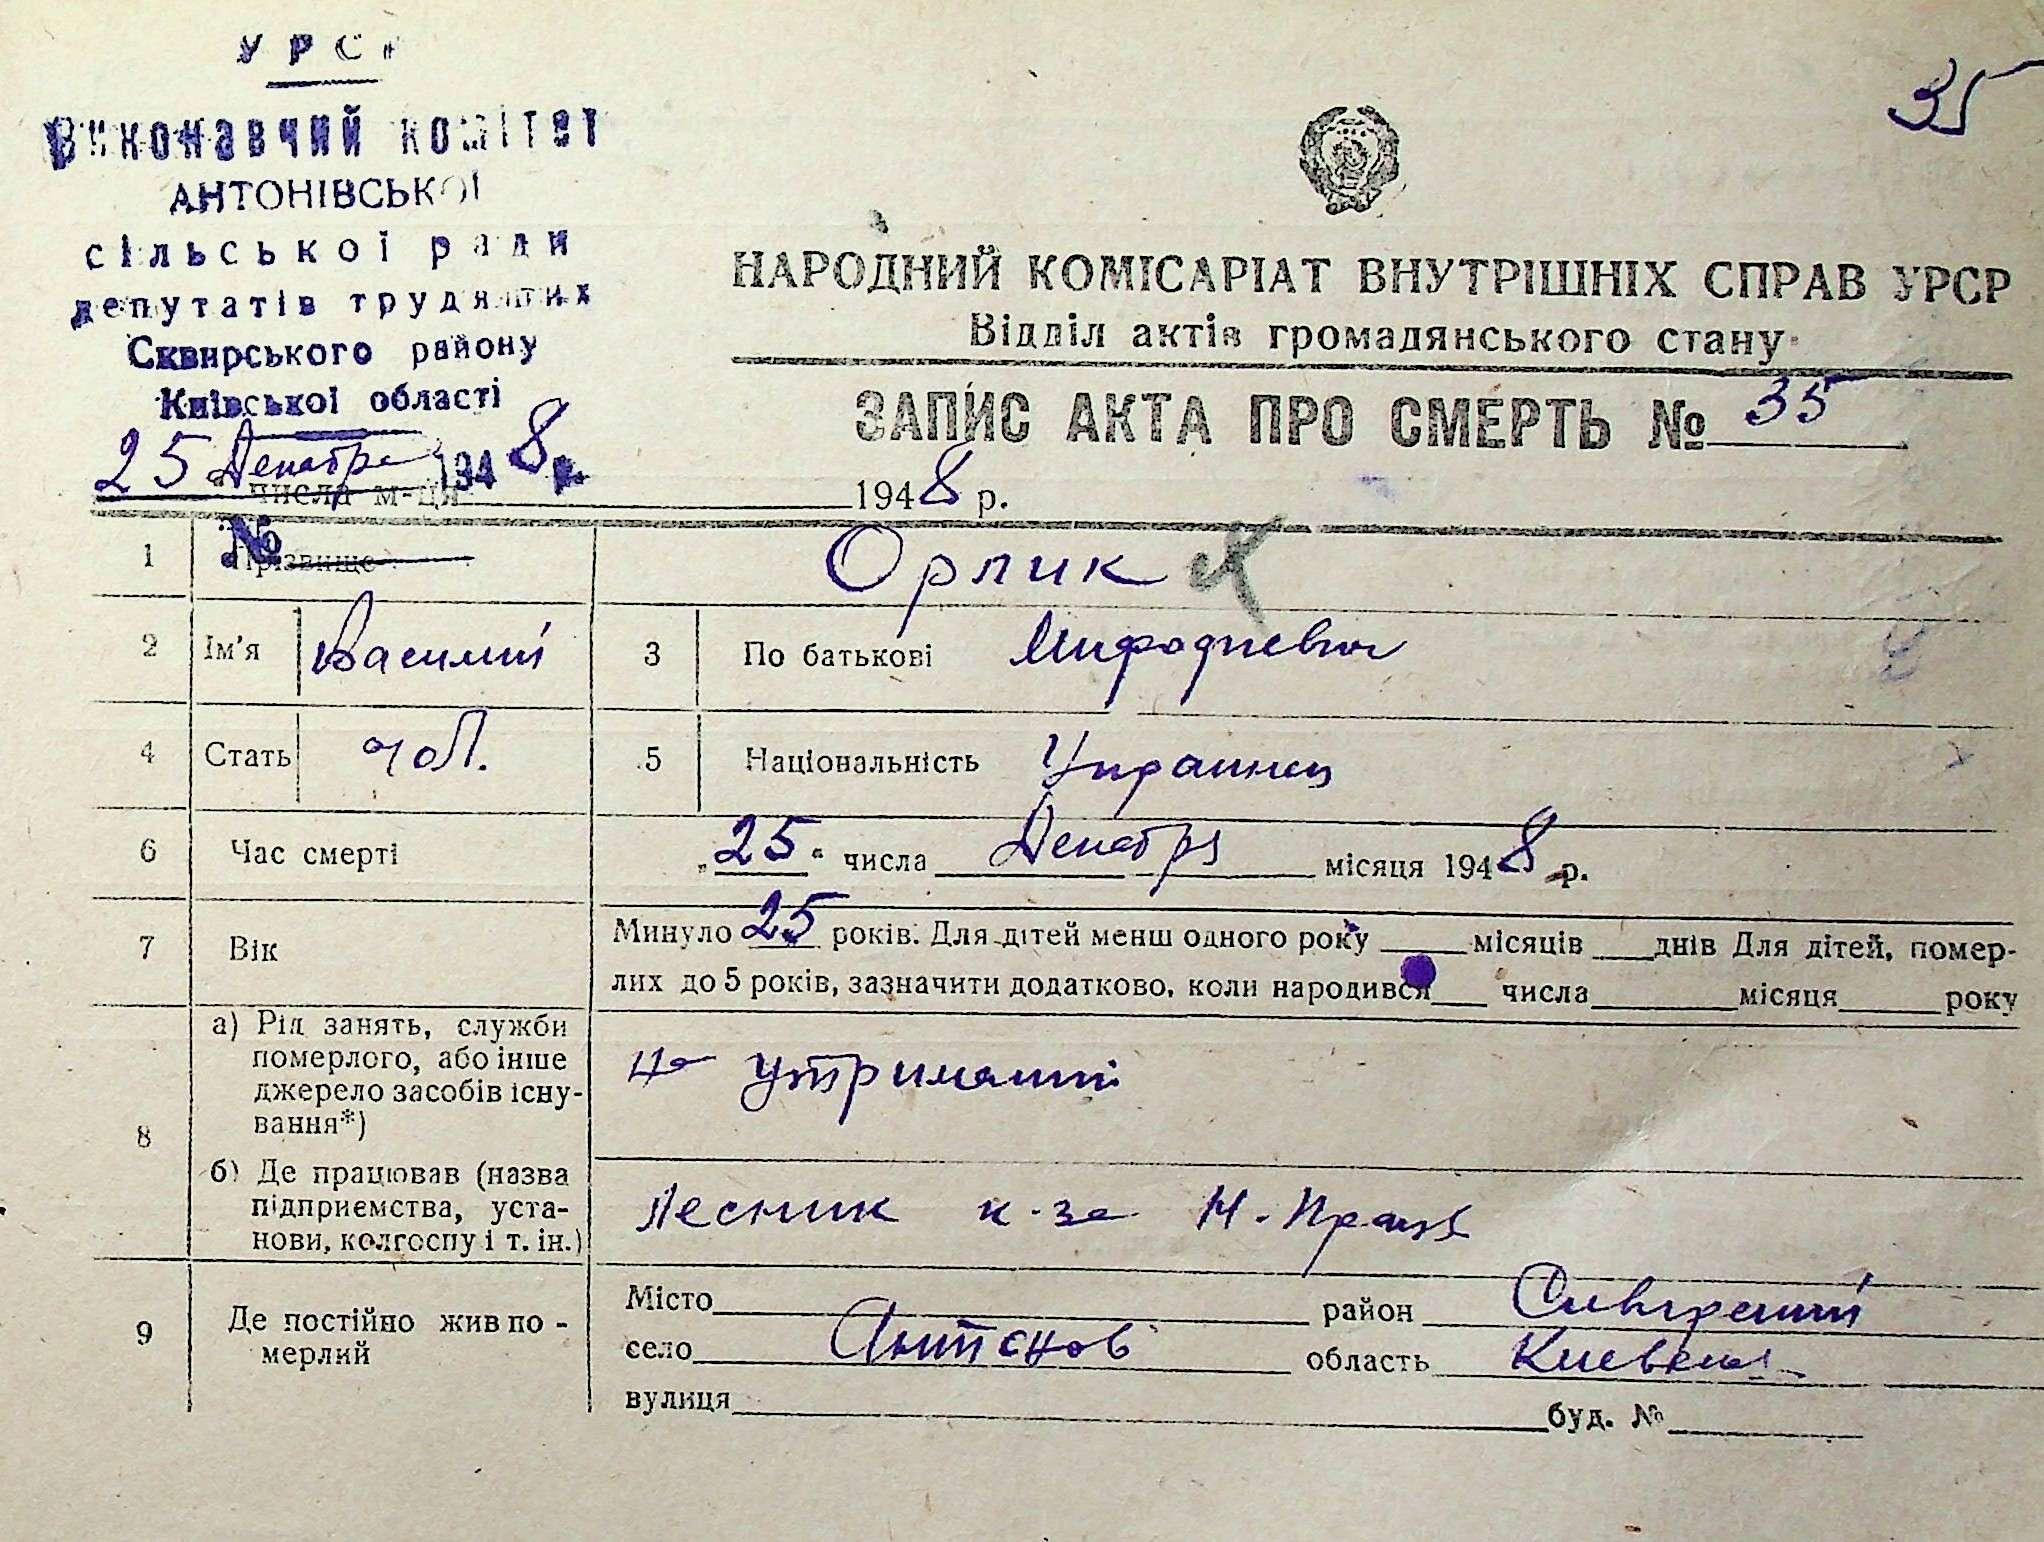 УРСР
35
Виконавчий комітет
АНТОНІВСЬКОЇ
сільської ради
депутатів трудящих
Сквирського району
Київської області
25 Декабря 1948 р.
НАРОДНИЙ КОМІСАРІАТ ВНУТРІШНІХ СПРАВ УРСР
Відділ актів громадянського стану
ЗАПИС АКТА ПРО СМЕРТЬ № 35
числа м-ця 1948 р.
№
1 Прізвище Орлик
2 Ім'я Василий 3 По батькові Мифодиевич
4 Стать чол. 5 Національність Украинец
6 Час смерті „25“ числа Декабря місяця 1948 р.
7 Вік Минуло 25 років. Для дітей менш одного року ____ місяців ____ днів Для дітей, помер-
лих до 5 років, зазначити додатково, коли народився ____ числа ____ місяця ____ року
8 а) Рід занять, служби
померлого, або інше
джерело засобів існу-
вання*)
на утриманні
б) Де працював (назва
підприємства, уста-
нови, колгоспу і т. ін.)
Лесник к-за
9 Де постійно жив по-
мерлий
Місто ____ район Сквирский
село Антонов область Киевская
вулиця ____ буд. №